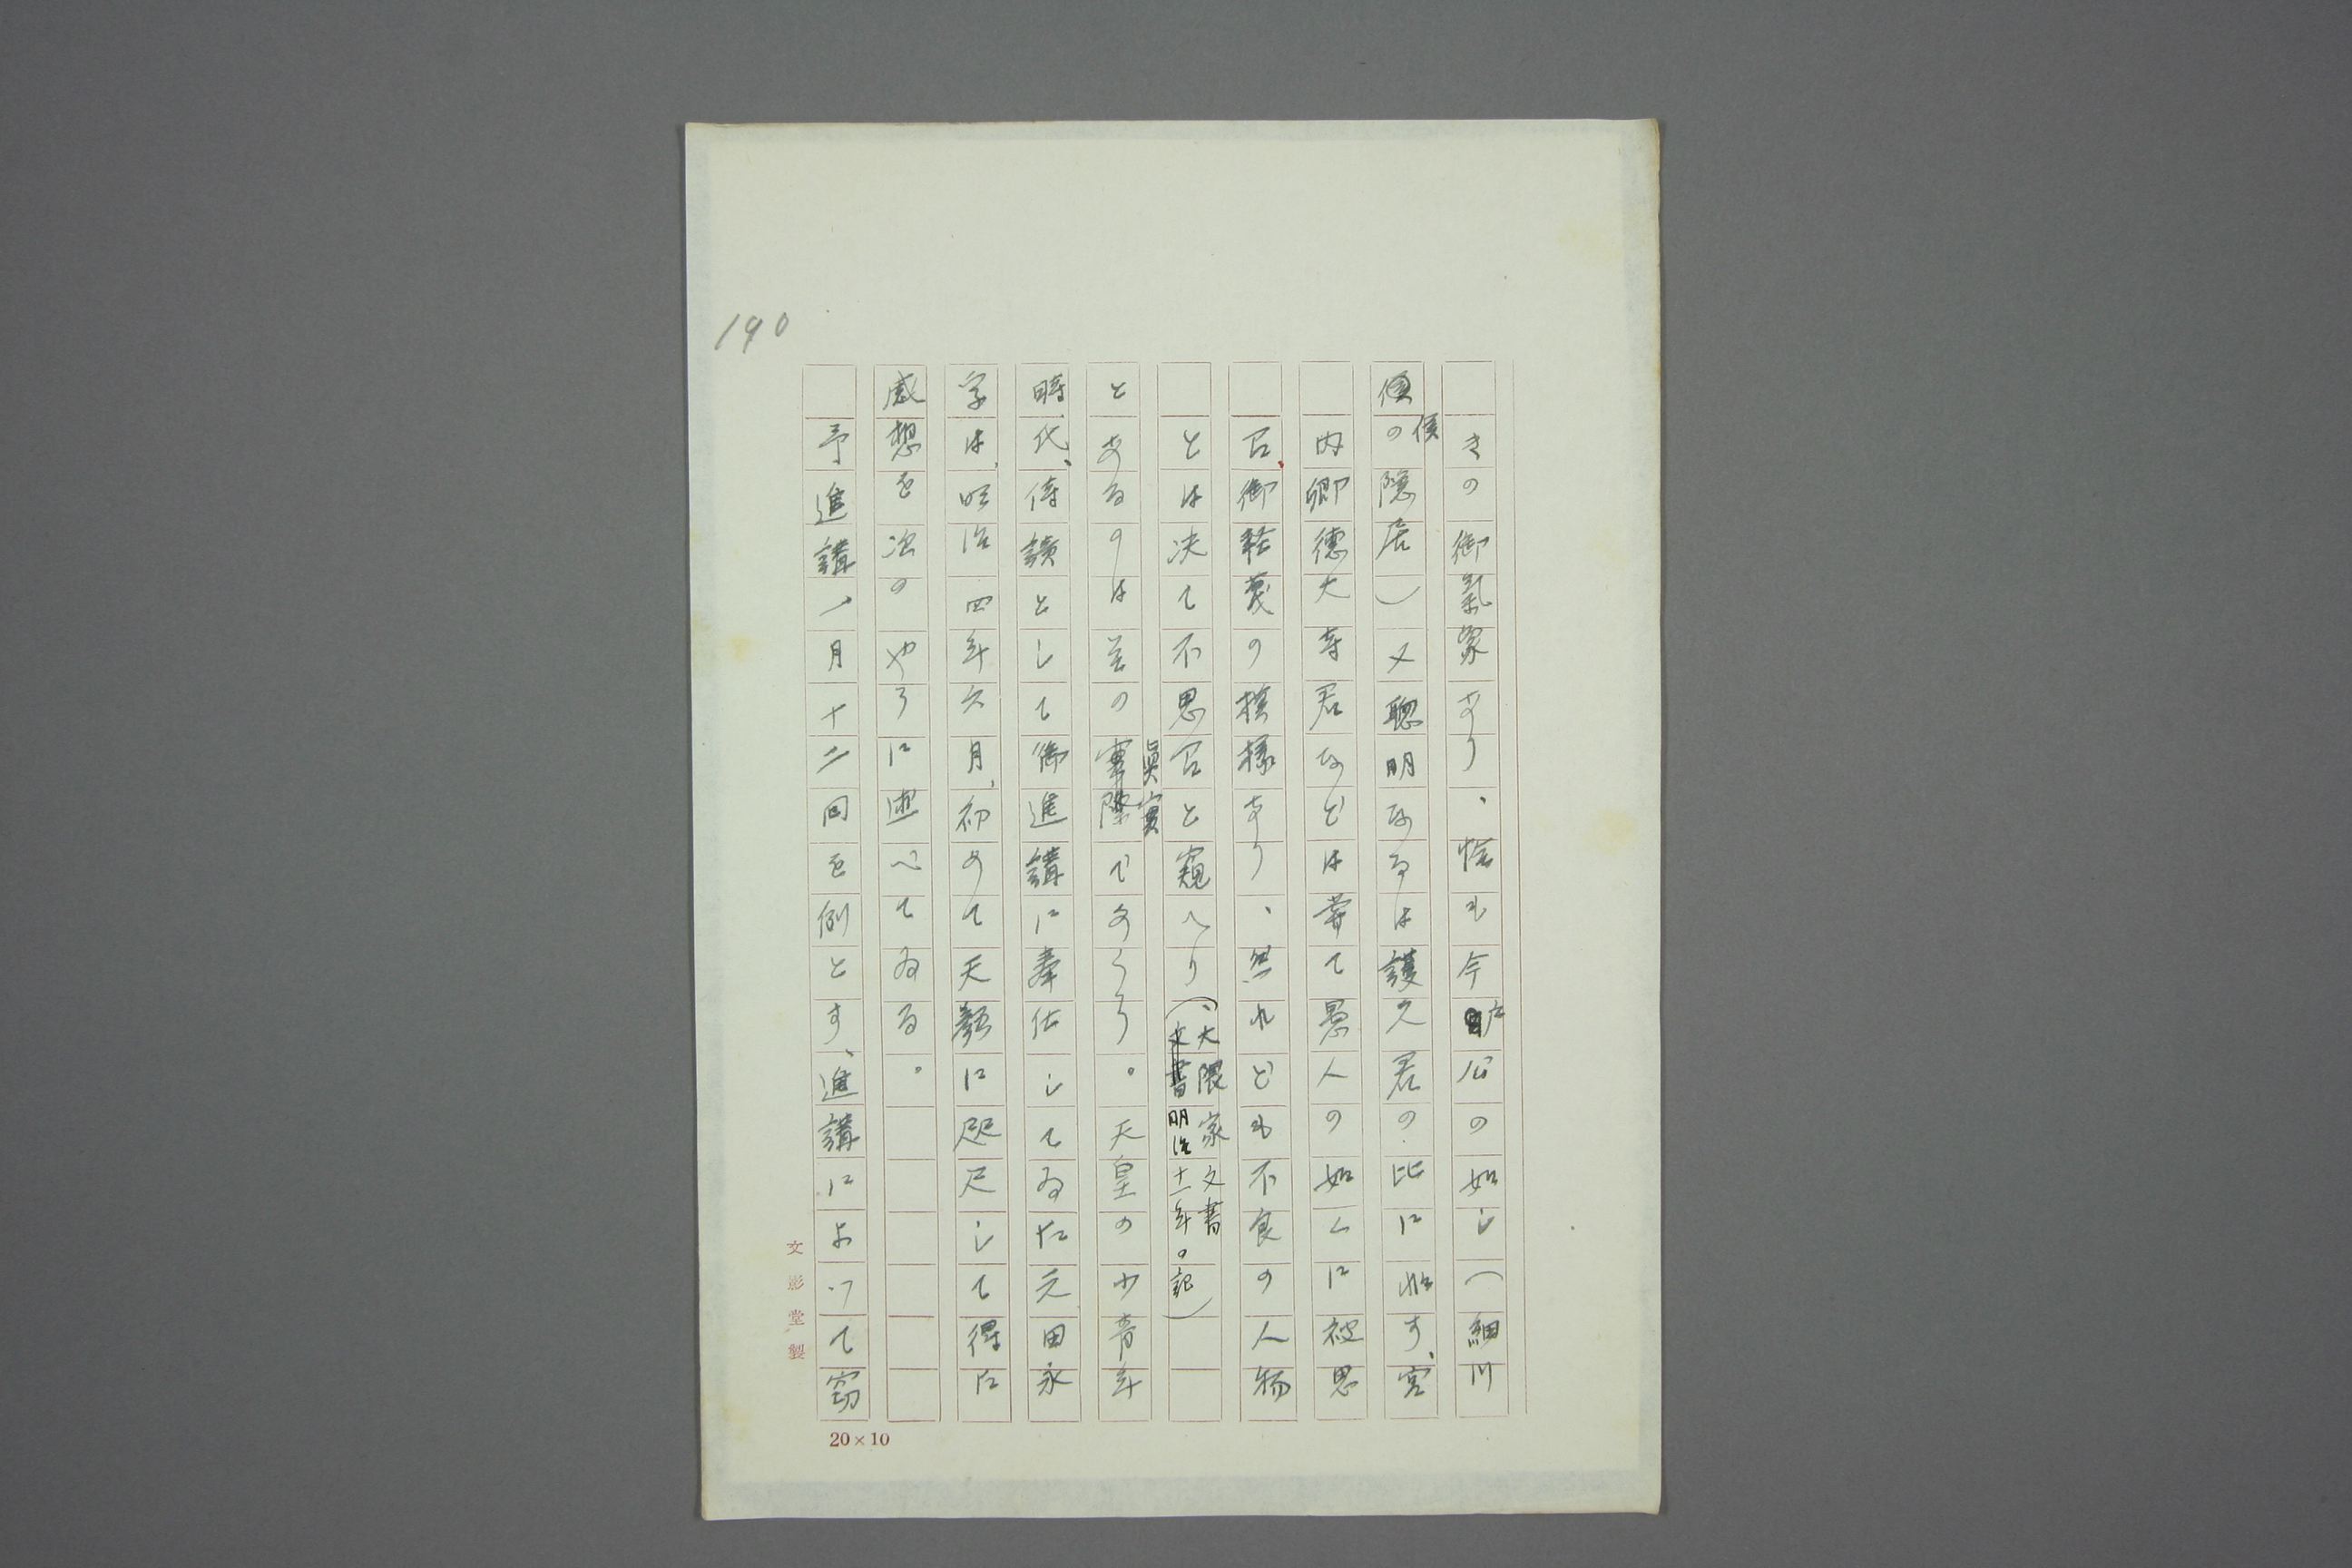 190
きの御氣象あり、恰も今戸公の如し(細川
侯の隠居)又聰明なるは護久君の比に非す、宮
内卿徳大寺君などは菅て愚人の如くに被思
召、御軽蔑の模様あり、然れども不良の人物
とは决て不思召と窺へり(大隈家文書明治十一年。記)
とあるのは並の眞實であらう。天皇の少青年
時代、侍讀として御進講に奉仕してゐた元田永
孚は、明治四年六月、初めて天顔に咫尺して得た
感想を次のやうに述べてゐる。
予進講一月十二回を例とす、進講によつて窃
文影堂製
20×10